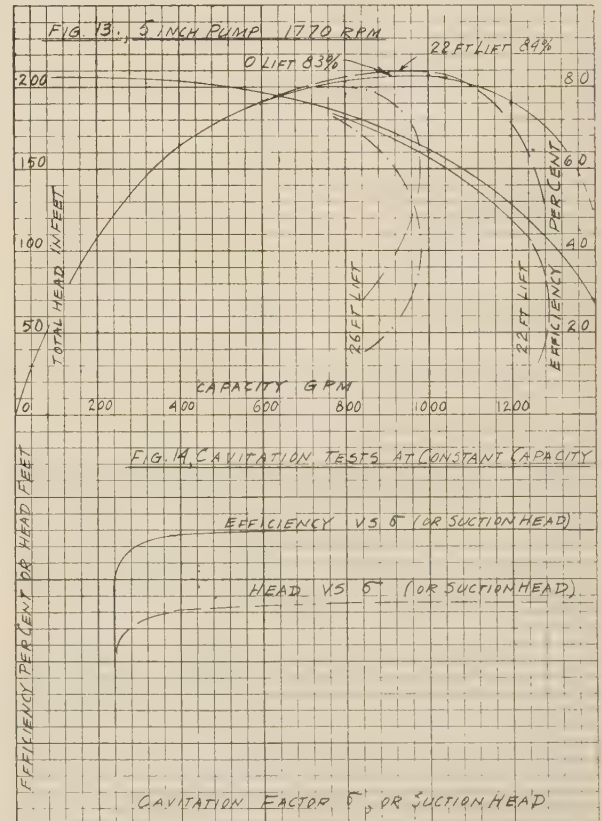 FIG. 13., 5 INCH PUMP 1770 RPM
0 LIFT 83%
22 FT LIFT 84%
200
150
100
50
TOTAL HEAD IN FEET
80
60
40
20
EFFICIENCY PER CENT
26 FT LIFT
22 FT LIFT
CAPACITY GPM
0 200 400 600 800 1000 1200
FIG. 14, CAVITATION TESTS AT CONSTANT CAPACITY
EFFICIENCY VS σ (OR SUCTION HEAD)
HEAD VS σ (OR SUCTION HEAD)
EFFICIENCY PER CENT OR HEAD FEET
CAVITATION FACTOR σ, OR SUCTION HEAD